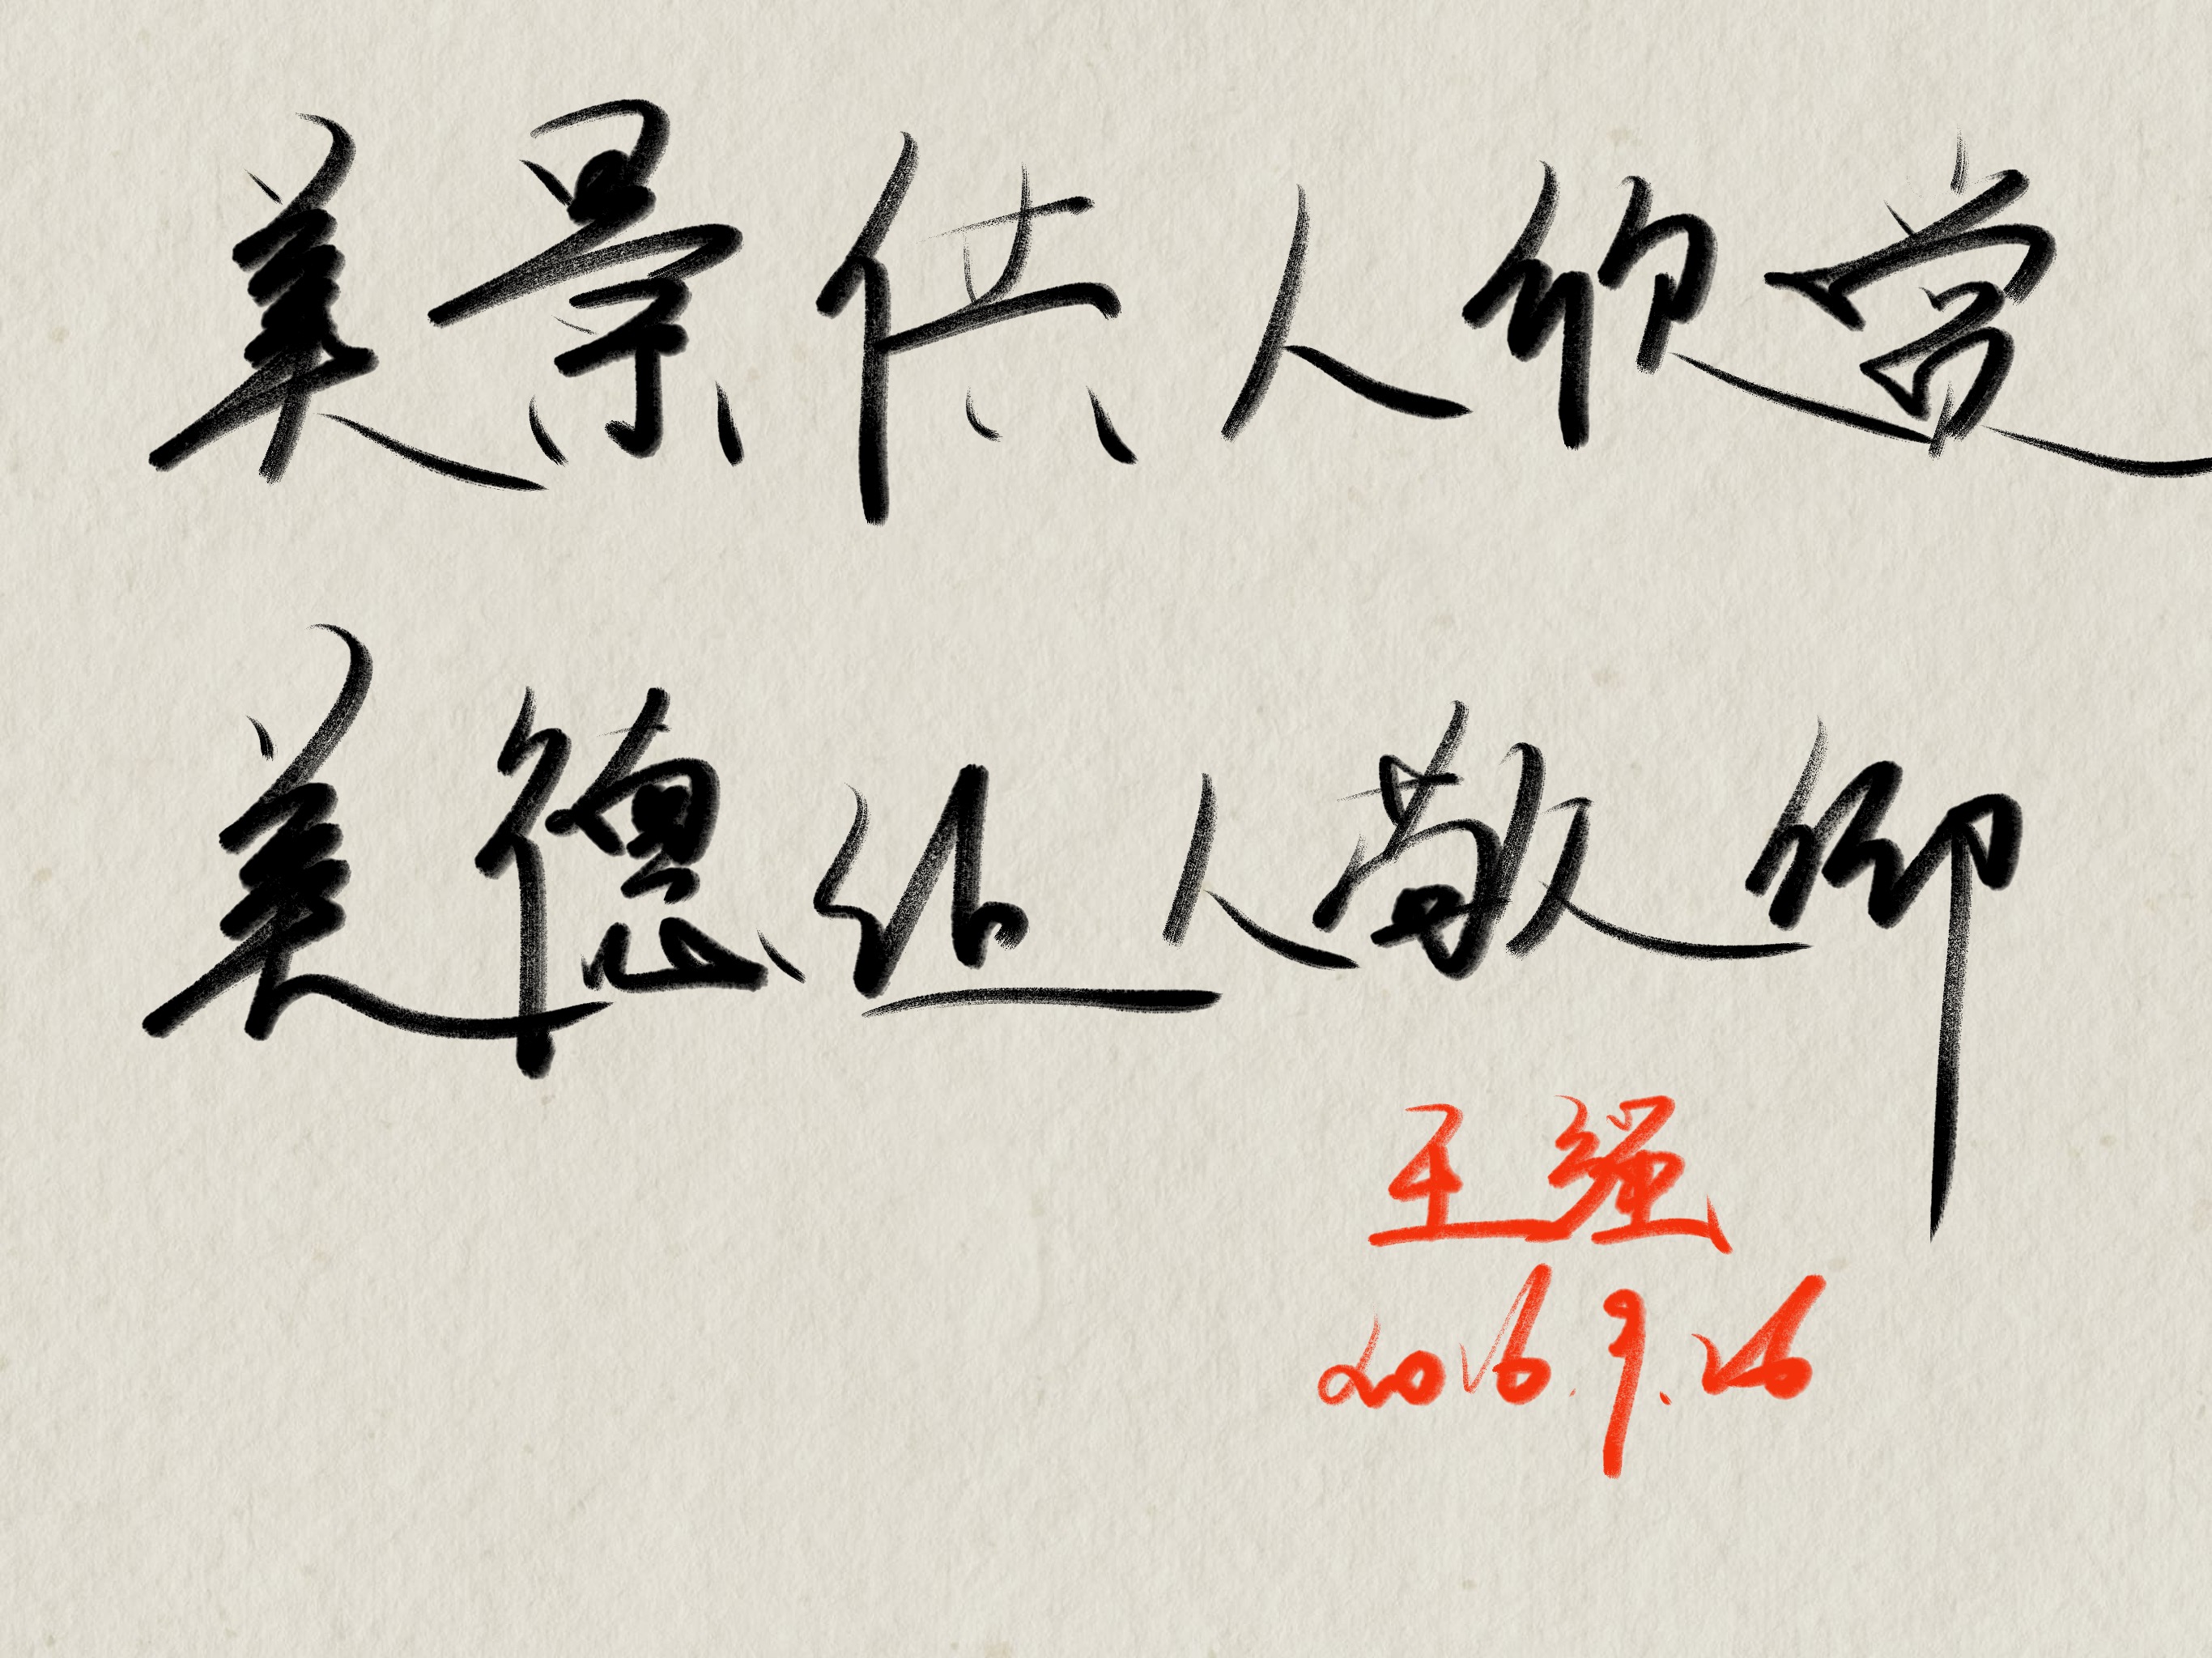 美景供人欣赏
美德让人敬仰
王强
2016.9.26